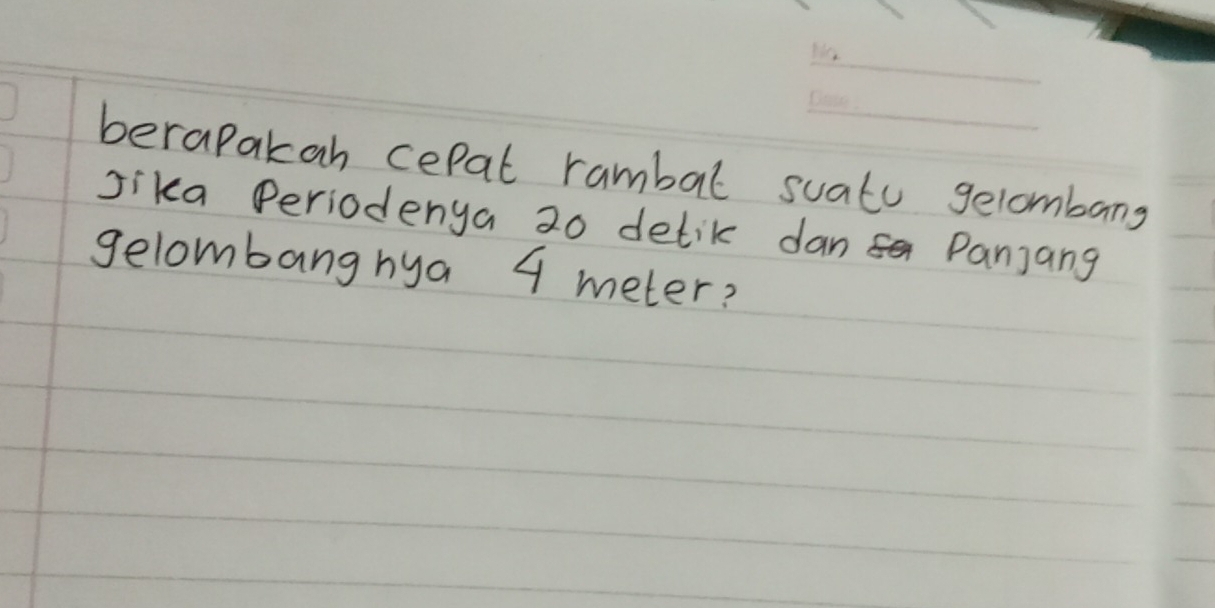 No.
Date:
berapakah cepat rambat suatu gelombang
Jika Periodenya 20 detik dan Panjang
gelombangnya 4 meter?